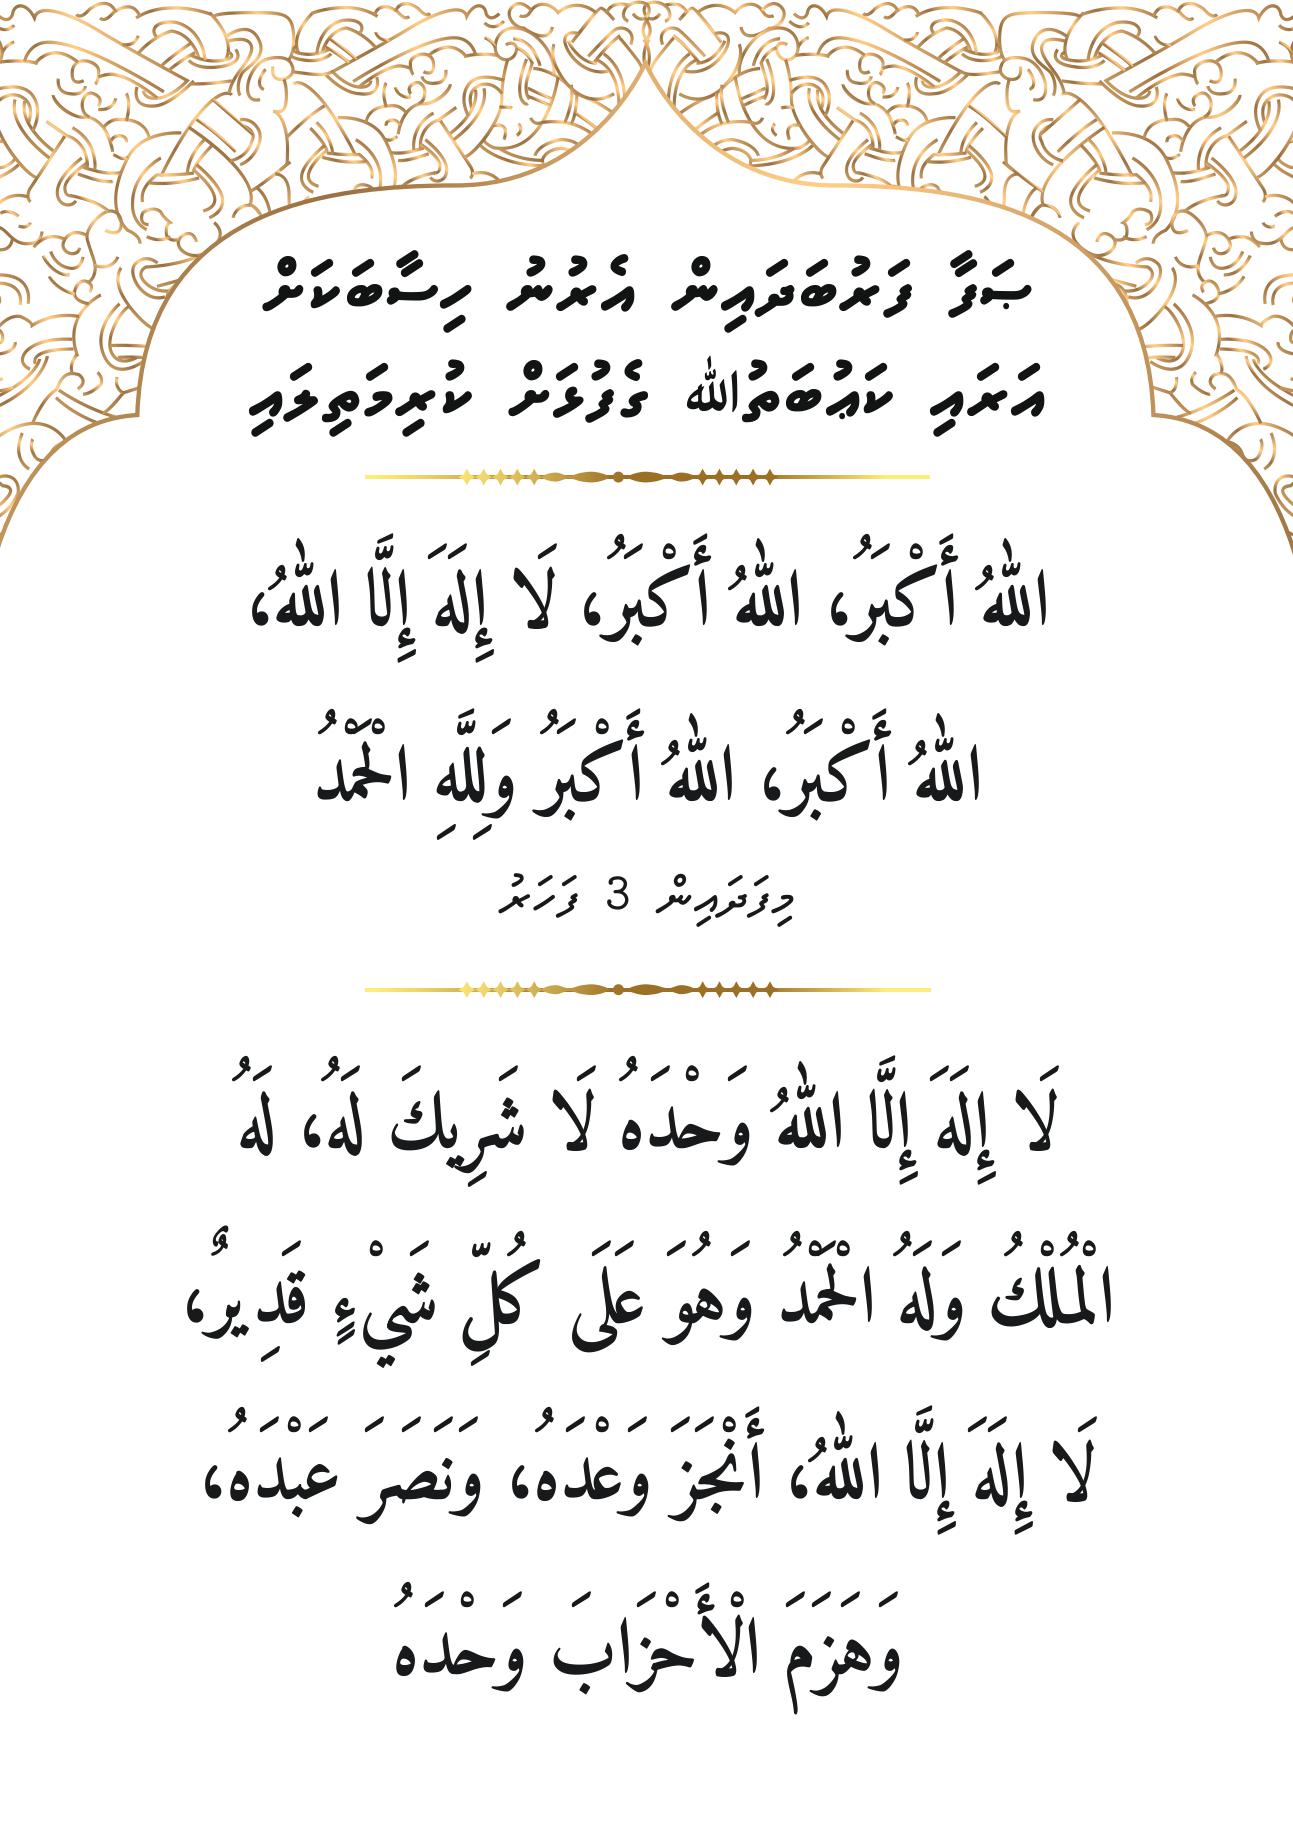 ޞަފާ ފަރުބަދައިން އެރުނު ހިސާބަކަށް
އަރައި ކަޢުބަތުﷲ ގެފުޅަށް ކުރިމަތިލައި
اللهُ أَكْبَرُ، اللهُ أَكْبَرُ، لَا إِلَهَ إِلَّا اللهُ،
اللهُ أَكْبَرُ، اللهُ أَكْبَرُ وَلِلَّهِ الْحَمْدُ
މިފަދައިން 3 ފަހަރު
لَا إِلَهَ إِلَّا اللهُ وَحْدَهُ لَا شَرِيكَ لَهُ، لَهُ
الْمُلْكُ وَلَهُ الْحَمْدُ وَهُوَ عَلَى كُلِّ شَيْءٍ قَدِيرٌ،
لَا إِلَهَ إِلَّا اللهُ، أَنْجَزَ وَعْدَهُ، وَنَصَرَ عَبْدَهُ،
وَهَزَمَ الْأَحْزَابَ وَحْدَهُ